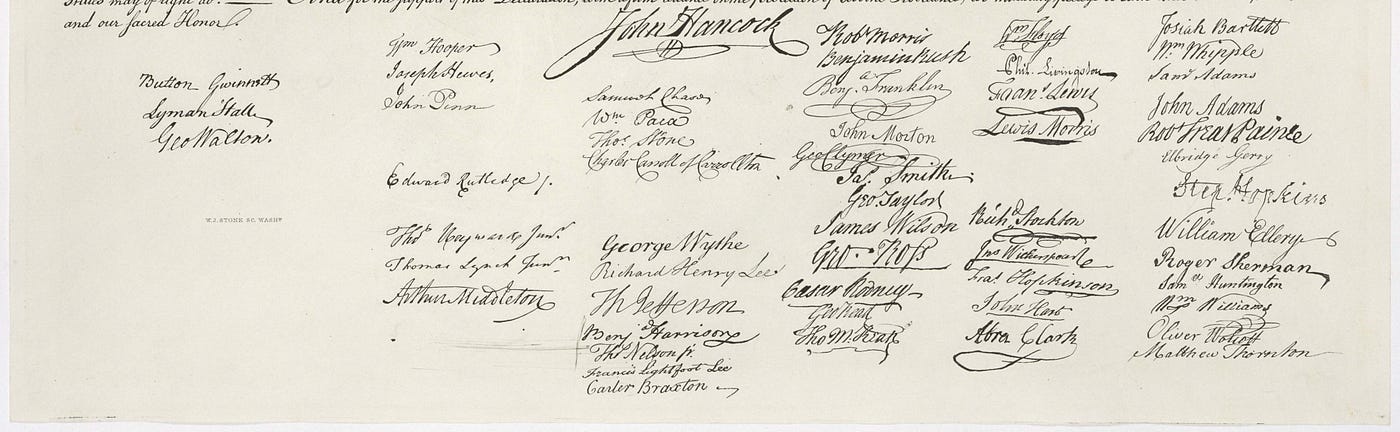 States may of right do. — And for the support of this Declaration, with a firm reliance on the protection of divine Providence, we mutually pledge to each
and our sacred Honor.
Button Gwinnett
Lyman Hall
Geo Walton.
W.J. STONE SC. WASHN
Wm Hooper
Joseph Hewes,
John Penn
Edward Rutledge /.
Thos Heyward Junr.
Thomas Lynch Junr.
Arthur Middleton
John Hancock
Samuel Chase
Wm Paca
Thos. Stone
Charles Carroll of Carrollton
George Wythe
Richard Henry Lee
Th Jefferson
Benj Harrison
Thos Nelson jr.
Francis Lightfoot Lee
Carter Braxton
Robt Morris
Benjamin Rush
Benja. Franklin
John Morton
Geo Clymer
Jas. Smith
Geo Taylor
James Wilson
Geo. Ross
Caesar Rodney
Geo Read
Tho M:Kean
Wm Floyd
Phil. Livingston
Frans. Lewis
Lewis Morris
Richd. Stockton
Jno Witherspoon
Fras. Hopkinson
John Hart
Abra Clark
Josiah Bartlett
Wm Whipple
Saml Adams
John Adams
Robt Treat Paine
Elbridge Gerry
Step. Hopkins
William Ellery
Roger Sherman
Saml Huntington
Wm Williams
Oliver Wolcott
Matthew Thornton